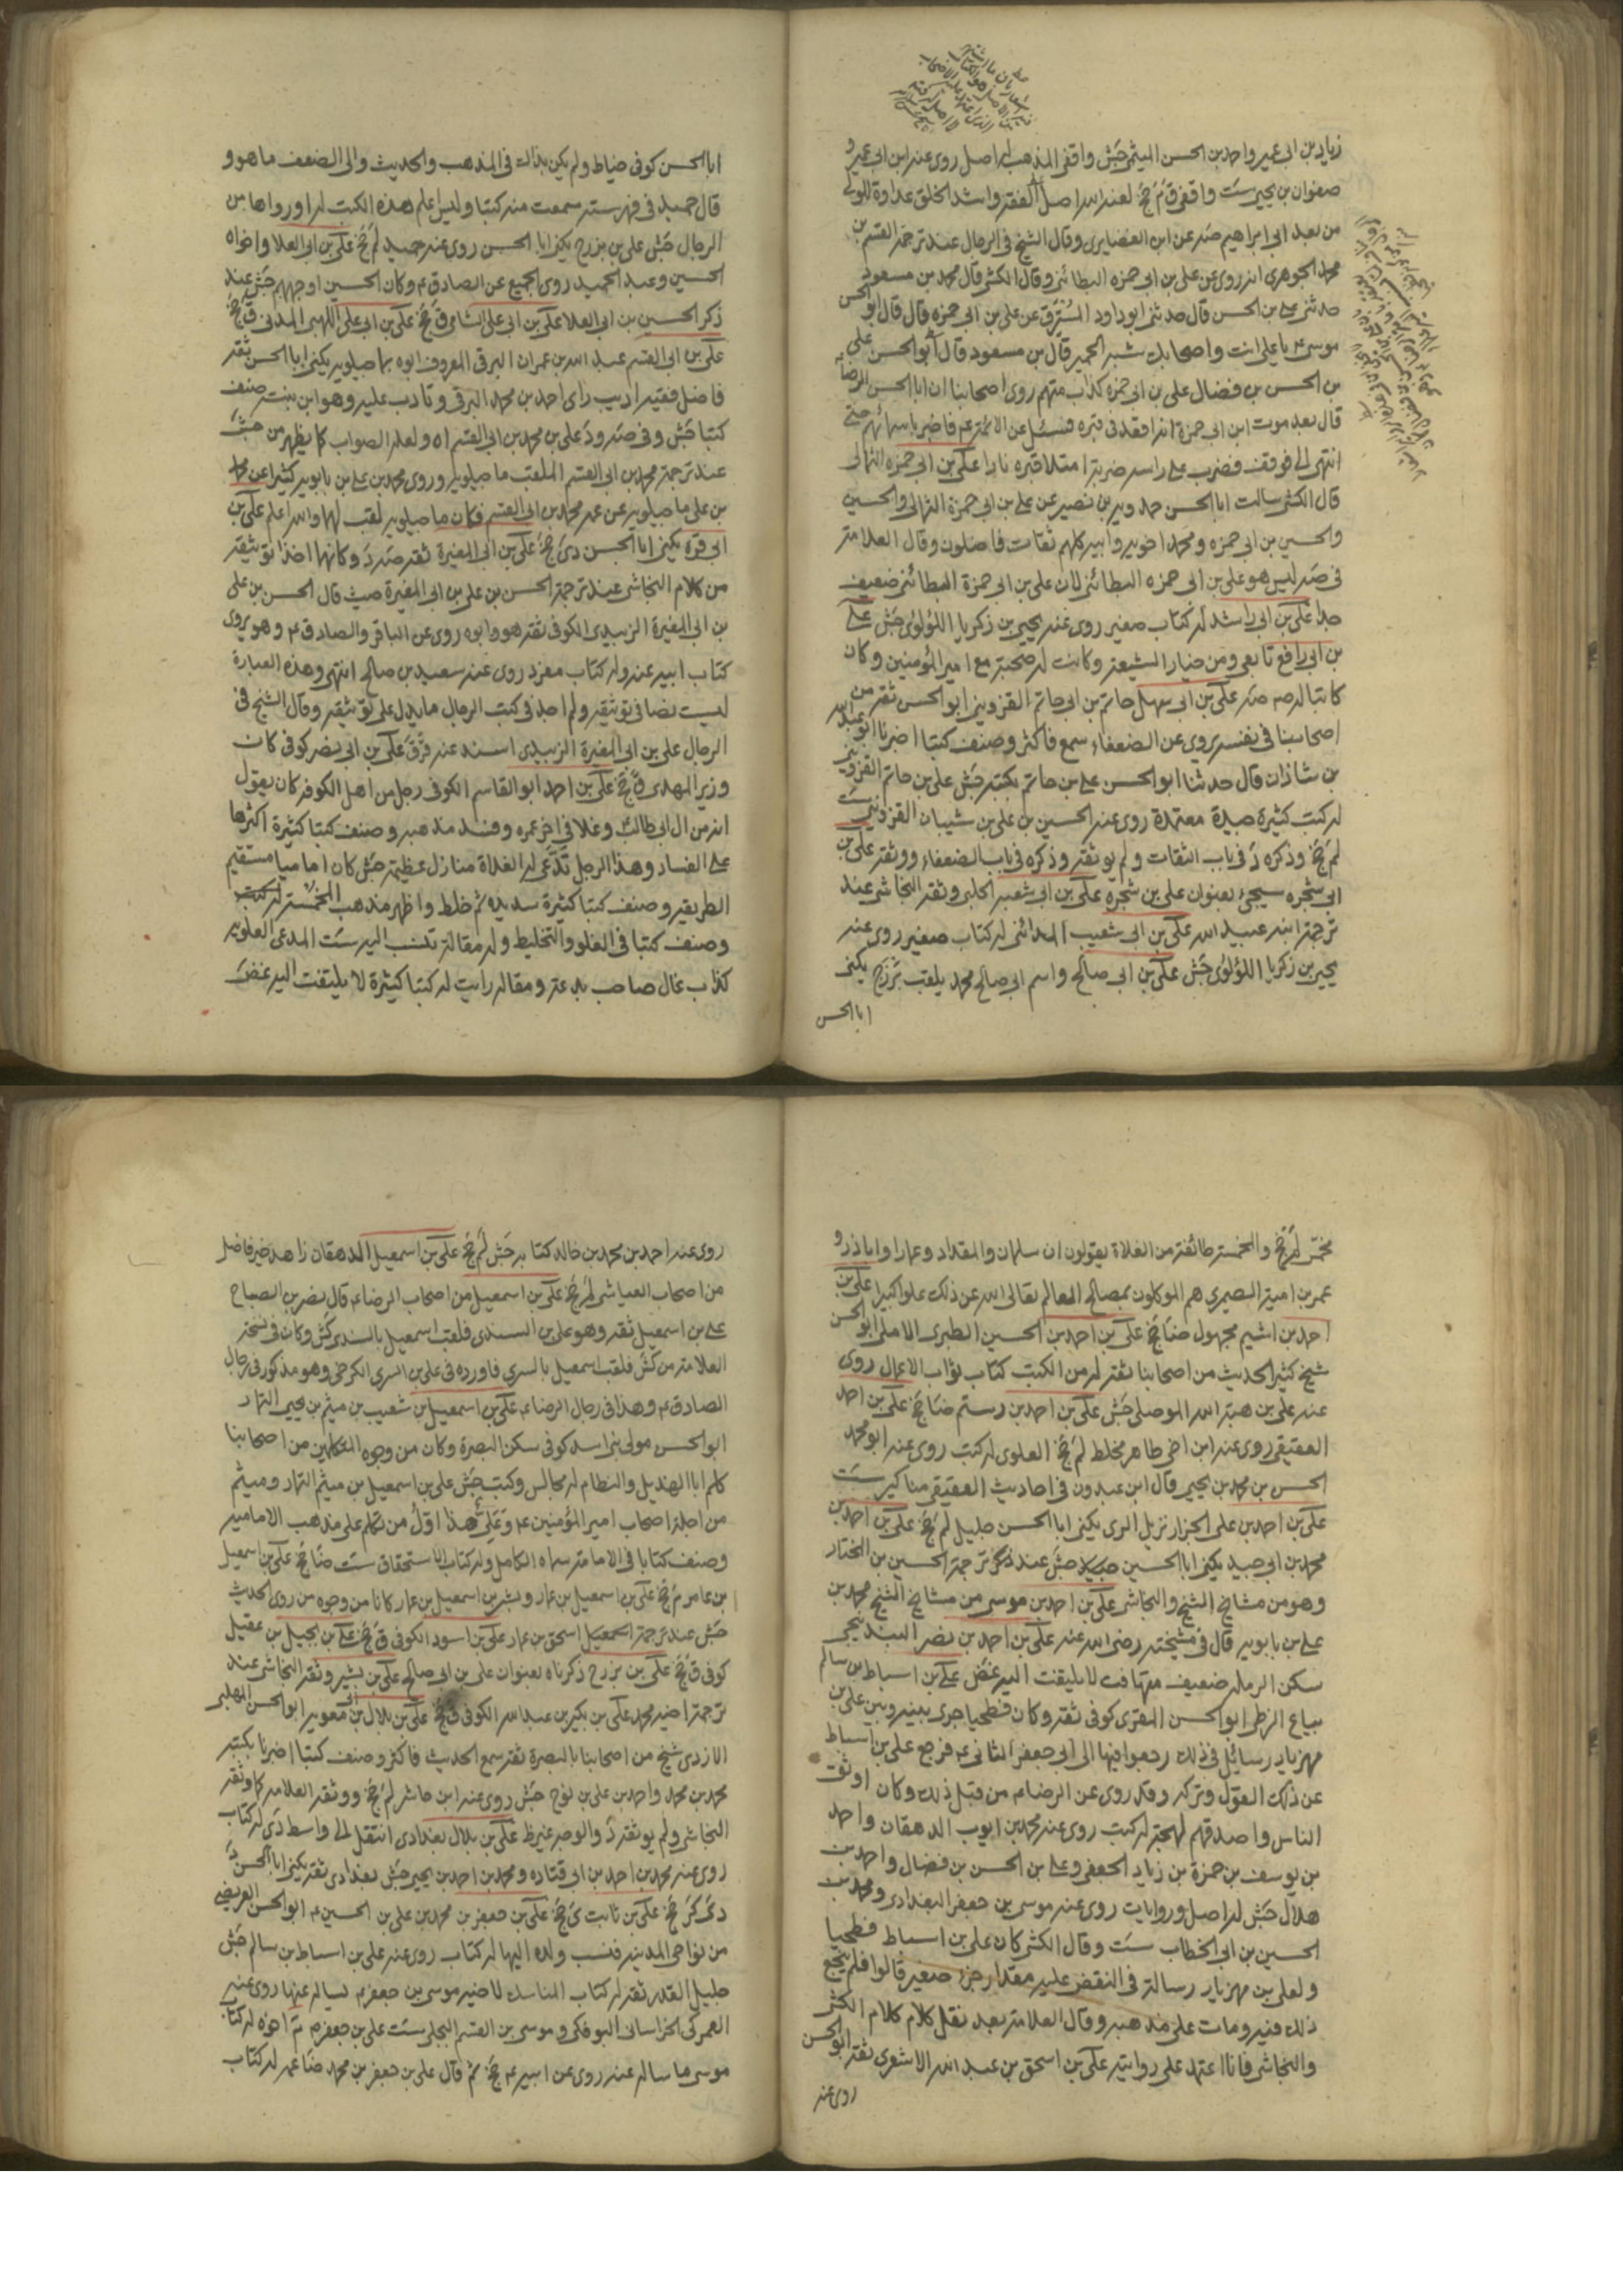 زياد بن ابي عمير واحمد بن الحسن الميثمي جش واقفي المذهب له اصل روى عنه ابن ابي عمير و
صفوان بن يحيى ست واقفي ق م جخ لعنه الله اصل الفقه واشد الخلق عداوة للولي
من بعد ابي ابراهيم صه عن ابن الغضايري وقال الشيخ في الرجال عند ترجمة القسم بن
محمد الجوهري انه روى عن علي بن ابي حمزه البطائني وقال الكشي قال محمد بن مسعود
حدثني علي بن الحسن قال حدثني ابو داود المسترق عن علي بن ابي حمزه قال قال ابو الحسن
موسى ع يا علي انت واصحابك شبه الحمير قال بن مسعود قال ابو الحسن علي
بن الحسن بن فضال علي بن ابي حمزه كذاب متهم روى اصحابنا ان ابا الحسن الرضا ع
قال بعد موت ابن ابي حمزة انه اقعد في قبره فسئل عن الائمة ع فاخبر باسمائهم حتى
انتهى الي فوقف فضرب على راسه ضربة امتلا قبره نارا علي بن ابي حمزه الثمالي
قال الكشي سالت ابا الحسن حمدويه بن نصير عن علي بن ابي حمزة الثمالي والحسين
والحسين بن ابي حمزه ومحمد اخويه وابيه كلهم ثقات فاضلون وقال العلامة
في صه ليس هو علي بن ابي حمزه البطائني لان علي بن ابي حمزة البطائني ضعيف
جدا علي بن ابي راشد له كتاب صغير روى عنه يحيى بن زكريا اللؤلؤي جش علي
بن ابي رافع تابعي ومن خيار الشيعة وكانت له صحبة مع امير المؤمنين وكان
كاتبا له صه علي بن ابي سهل حاتم بن ابي حاتم القزويني ابو الحسن ثقة من
اصحابنا في نفسه يروي عن الضعفاء سمع فاكثر وصنف كتبا اخبرنا ابو عبد الله
بن شاذان قال حدثنا ابو الحسن علي بن حاتم بكتبه جش علي بن حاتم القزويني
له كتب كثيرة جيدة معتمدة روى عنه الحسين بن علي بن شيبان القزويني ست
لم جخ وذكره د في باب الثقات ولم يوثقه وذكره في باب الضعفاء ووثقه علي بن
ابي شجره سيجئ بعنوان علي بن شجره علي بن ابي شعبه الحلبي وثقه النجاشي عند
ترجمة ابنه عبيد الله علي بن ابي شعيب المدائني له كتاب صغير روى عنه
يحيى بن زكريا اللؤلؤي جش علي بن ابي صالح واسم ابي صالح محمد يلقب بزرج يكنى
ابا الحسن
ابا الحسن كوفي خياط ولم يكن بذاك في المذهب والحديث والى الضعف ما هو و
قال حميد في فهرسته سمعت منه كتبا وليس اعلم هذه الكتب له او رواها من
الرجال جش علي بن بزرج يكنى ابا الحسن روى عنه حميد لم جخ علي بن ابي العلا واخواه
الحسين وعبد الحميد روى الجميع عن الصادق ع وكان الحسين اوجههم جش عند
ذكر الحسين بن ابي العلا علي بن ابي علي الشامي ق جخ علي بن ابي علي اللهبي المدني ق جخ
علي بن ابي القسم عبد الله بن عمران البرقي المعروف ابوه بماجيلويه يكنى ابا الحسن ثقة
فاضل فقيه اديب راى احمد بن محمد البرقي وتادب عليه وهو ابن بنته صنف
كتبا جش وفي صه ود علي بن محمد بن ابي القسم اه ولعله الصواب كما يظهر من جش
عند ترجمة محمد بن ابي القسم الملقب ماجيلويه وروى محمد بن علي بن بابويه كثيرا عن محمد
بن علي ماجيلويه عن عمه محمد بن ابي القسم فكان ماجيلويه لقب لهما والله اعلم علي بن
ابي قرة يكنى ابا الحسن دي جخ علي بن ابي المغيرة ثقة صه د وكانهما اخذا توثيقه
من كلام النجاشي عند ترجمة الحسن بن علي بن ابي المغيرة حيث قال الحسن بن علي
بن ابي المغيرة الزبيدي الكوفي ثقة هو وابوه روى عن الباقر والصادق ع وهو يروي
كتاب ابيه عنه وله كتاب مفرد روى عنه سعيد بن صالح انتهى وهذه العبارة
ليست نصا في توثيقه ولم اجد في كتب الرجال ما يدل على توثيقه وقال الشيخ في
الرجال علي بن ابي المغيرة الزبيدي اسند عنه ق ق علي بن ابي نصر كوفي كان
وزير المهدي ق جخ علي بن احمد ابو القاسم الكوفي رجل من اهل الكوفة كان يقول
انه من ال ابي طالب وغلا في اخر عمره وفسد مذهبه وصنف كتبا كثيرة اكثرها
على الفساد وهذا الرجل تدعي له الغلاة منازل عظيمة جش كان اماميا مستقيم
الطريقة وصنف كتبا كثيرة سديدة ثم خلط واظهر مذهب المخمسة له كتب
وصنف كتبا في الغلو والتخليط وله مقالة تنسب اليه ست المدعي العلوية
كذاب غال صاحب بدعة ومقالة رايت له كتبا كثيرة لا يلتفت اليه غض
مخمس لم جخ والمخمسة طائفة من الغلاة يقولون ان سلمان والمقداد وعمارا وابا ذر و
عمر بن امية الضيمري هم الموكلون بمصالح العالم تعالى الله عن ذلك علوا كبيرا علي بن
احمد بن اشيم مجهول ضا جخ علي بن احمد بن الحسين الطبري الاملي ابو الحسن
شيخ كثير الحديث من اصحابنا ثقة له من الكتب كتاب ثواب الاعمال روى
عنه علي بن هبة الله الموصلي جش علي بن احمد بن رستم ضا جخ علي بن احمد
العقيقي روى عنه ابن اخي طاهر مخلط لم جخ العلوي له كتب روى عنه ابو محمد
الحسن بن محمد بن يحيى قال ابن عبدون في احاديث العقيقي مناكير ست
علي بن احمد بن علي الخزاز نزيل الري يكنى ابا الحسن جليل لم جخ علي بن احمد بن
محمد بن ابي جيد يكنى ابا الحسين جش عند ذكر ترجمة الحسين بن المختار
وهو من مشايخ الشيخ والنجاشي علي بن احمد بن موسى من مشايخ الشيخ محمد بن
علي بن بابويه قال في مشيخته رضي الله عنه علي بن احمد بن نصر البندنيجي
سكن الرملة ضعيف متهافت لا يلتفت اليه غض علي بن اسباط بن سالم
بياع الزطي ابو الحسن المقري كوفي ثقة وكان فطحيا جرى بينه وبين علي بن
مهزيار رسائل في ذلك رجعوا فيها الى ابي جعفر الثاني ع فرجع علي بن اسباط
عن ذلك القول وتركه وقد روى عن الرضا ع من قبل ذلك وكان اوثق
الناس واصدقهم لهجة له كتب روى عنه محمد بن ايوب الدهقان واحمد
بن يوسف بن حمزة بن زياد الجعفي وعلي بن الحسن بن فضال واحمد بن
هلال جش له اصل وروايات روى عنه موسى بن جعفر البغدادي ومحمد بن
الحسين بن ابي الخطاب ست وقال الكشي كان علي بن اسباط فطحيا
ولعلي بن مهزيار رسالة في النقض عليه مقدار جزء صغير قالوا فلم ينجع
ذلك فيه ومات على مذهبه وقال العلامة بعد نقل كلام كلام الكشي
والنجاشي فانا اعتمد على روايته علي بن اسحق بن عبد الله الاشعري ثقة ابو الحسن
روى عنه
روى عنه احمد بن محمد بن خالد كتابه جش لم جخ علي بن اسمعيل الدهقان زاهد خير فاضل
من اصحاب العياشي لم جخ علي بن اسمعيل من اصحاب الرضا ع قال نصر بن الصباح
علي بن اسمعيل ثقة وهو علي بن السندي فلقب اسمعيل بالسندي كش وكان في نسخة
العلامة من كش فلقب اسمعيل بالسري فاورده في علي بن السري الكرخي وهو مذكور في رجال
الصادق ع وهذا في رجال الرضا ع علي بن اسمعيل بن شعيب بن ميثم بن يحيى التمار
ابو الحسن مولى بني اسد كوفي سكن البصرة وكان من وجوه المتكلمين من اصحابنا
كلم ابا الهذيل والنظام له مجالس وكتب جش علي بن اسمعيل بن ميثم التمار وميثم
من اجلة اصحاب امير المؤمنين ع وعلي هذا اول من تكلم على مذهب الامامية
وصنف كتابا في الامامة سماه الكامل وله كتاب الاستحقاق ست ضا جخ علي بن اسمعيل
بن عامر م جخ علي بن اسمعيل بن عمار وبشر بن اسمعيل بن عمار كانا من وجوه من روى الحديث
جش عند ترجمة اسمعيل اسحق بن عمار علي بن اسود الكوفي ق جخ علي بن بجيل بن عقيل
كوفي ق جخ علي بن بزرج ذكرناه بعنوان علي بن ابي صالح علي بن بشير وثقه النجاشي عند
ترجمة اخيه محمد علي بن بكير بن عبد الله الكوفي ق جخ علي بن بلال بن ابي معويه ابو الحسن المهلبي
الازدي شيخ من اصحابنا بالبصرة ثقة سمع الحديث فاكثر وصنف كتبا اخبرنا بكتبه
محمد بن محمد واحمد بن علي بن نوح جش روى عنه ابن حاشر لم جخ ووثقه العلامة كما وثقه
النجاشي ولم يوثقه د والوجه غير ظ علي بن بلال بغدادي انتقل الى واسط دي له كتاب
روى عنه محمد بن احمد بن ابي قتاده ومحمد بن احمد بن يحيى جش بغدادي ثقة يكنى ابا الحسن د
دي كر جخ علي بن ثابت ي جخ علي بن جعفر بن محمد بن علي بن الحسين ع ابو الحسن العريضي
من نواحي المدينة فنسب ولده اليها له كتاب روى عنه علي بن اسباط بن سالم جش
جليل القدر ثقة له كتاب المناسك لاخيه موسى بن جعفر ع يساله عنها روى عنه
العمركي الخراساني البوفكي وموسى بن القسم البجلي ست علي بن جعفر ع اخوه له كتاب
موسى ما ساله عنه روى عن ابيه ع جخ ثم قال علي بن جعفر بن محمد ضا عمه له كتاب